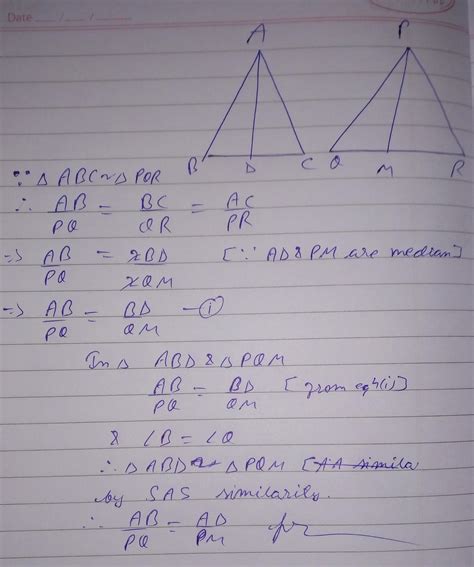 Date / /
A P
B D C Q M R
∵ Δ ABC ~ Δ PQR
∴ AB/PQ = BC/QR = AC/PR
=> AB/PQ = 2BD/2QM [∵ AD & PM are median]
=> AB/PQ = BD/QM — (i)
In Δ ABD & Δ PQM
AB/PQ = BD/QM [from eqn (i)]
& ∠B = ∠Q
∴ Δ ABD ~ Δ PQM [AA simila
by SAS similarity.
∴ AB/PQ = AD/PM